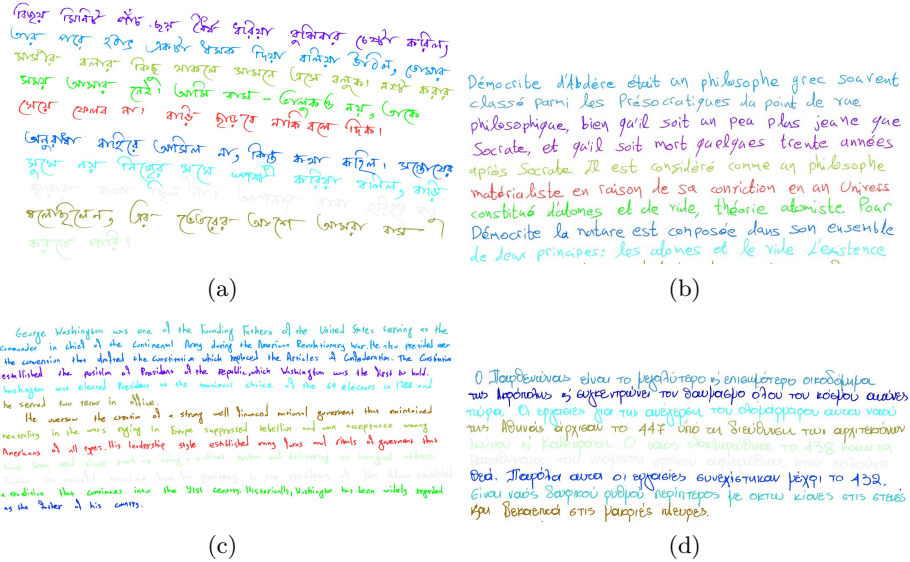 বিজয় মিনিট পাঁচ-ছয় ধৈর্য ধরিয়া বুঝিবার চেষ্টা করিল,
তার পরে হঠাৎ একটা ধমক দিয়া বলিয়া উঠিল, তোমার
মাসীর বলার কিছু থাকলে সামনে এসে বলুক। নষ্ট করার
সময় আমার নেই। আমি বাঘ-ভালুকও নয়, তাকে
খেয়ে ফেলব না। বাড়ি ছাড়বে নাকি বলে দিক।
অনুরাধা বাহিরে আসিল না, কিন্তু কথা কহিল। সন্তোষের
মুখে নয় নিজের মুখে স্পষ্ট করিয়া বলিল, বাড়ি
কথা ছিল না। আপনার বাবা
বলেছিলেন, এর ভেতরের অংশে আমরা বাস
করতে পারি।
(a)
Démocrite d'Abdère était un philosophe grec souvent
classé parmi les Présocratiques du point de vue
philosophique, bien qu'il soit un peu plus jeune que
Socrate, et qu'il soit mort quelques trente années
après Socrate. Il est considéré comme un philosophe
matérialiste en raison de sa conriction en un Univers
constitué d'atomes et de vide, théorie atomiste. Pour
Démocrite la nature est composée dans son ensemble
de deux principes: les atomes et le vide. L'existence
(b)
George Washington was one of the Founding Fathers of the United States serving as the
commander in chief of the Continental Army during the American Revolutionary War. He also presided over
the convention that drafted the Constitution which replaced the Articles of Confederation. The Constitution
established the position of President of the republic, which Washington was the first to hold.
Washington was elected President as the unanimous choice of the 69 electors in 1788 and
he served two terms in office.
He oversaw the creation of a strong well financed national government that maintained
neutrality in the wars raging in Europe suppressed rebellion and won acceptance among
Americans of all types. His leadership style established many forms and rituals of government that
have been used since such as using a cabinet system and delivering an inaugural address.
a tradition that continues into the 21st century. Historically, Washington has been widely regarded
as the father of his country.
(c)
Ο Παρθενώνας είναι το μεγαλύτερο κ' επισημότερο οικοδόμημα
της Ακρόπολης κ' συγκεντρώνει τον θαυμασμό όλου του κόσμου αιώνες
τώρα. Οι εργασίες για την ανέγερση του θαυμάσιου αυτού ναού
της Αθηνάς άρχισαν το 447 υπό τη διεύθυνση των αρχιτεκτόνων
Ικτίνου κ' Καλλικράτη. Ο ναός το 438 κατά τα
Θεά. Παρόλα αυτά οι εργασίες συνεχίστηκαν μέχρι το 432.
Είναι ναός δωρικού ρυθμού περίπτερος με οκτώ κίονες στις στενές
και δεκαεπτά στις μακριές πλευρές.
(d)